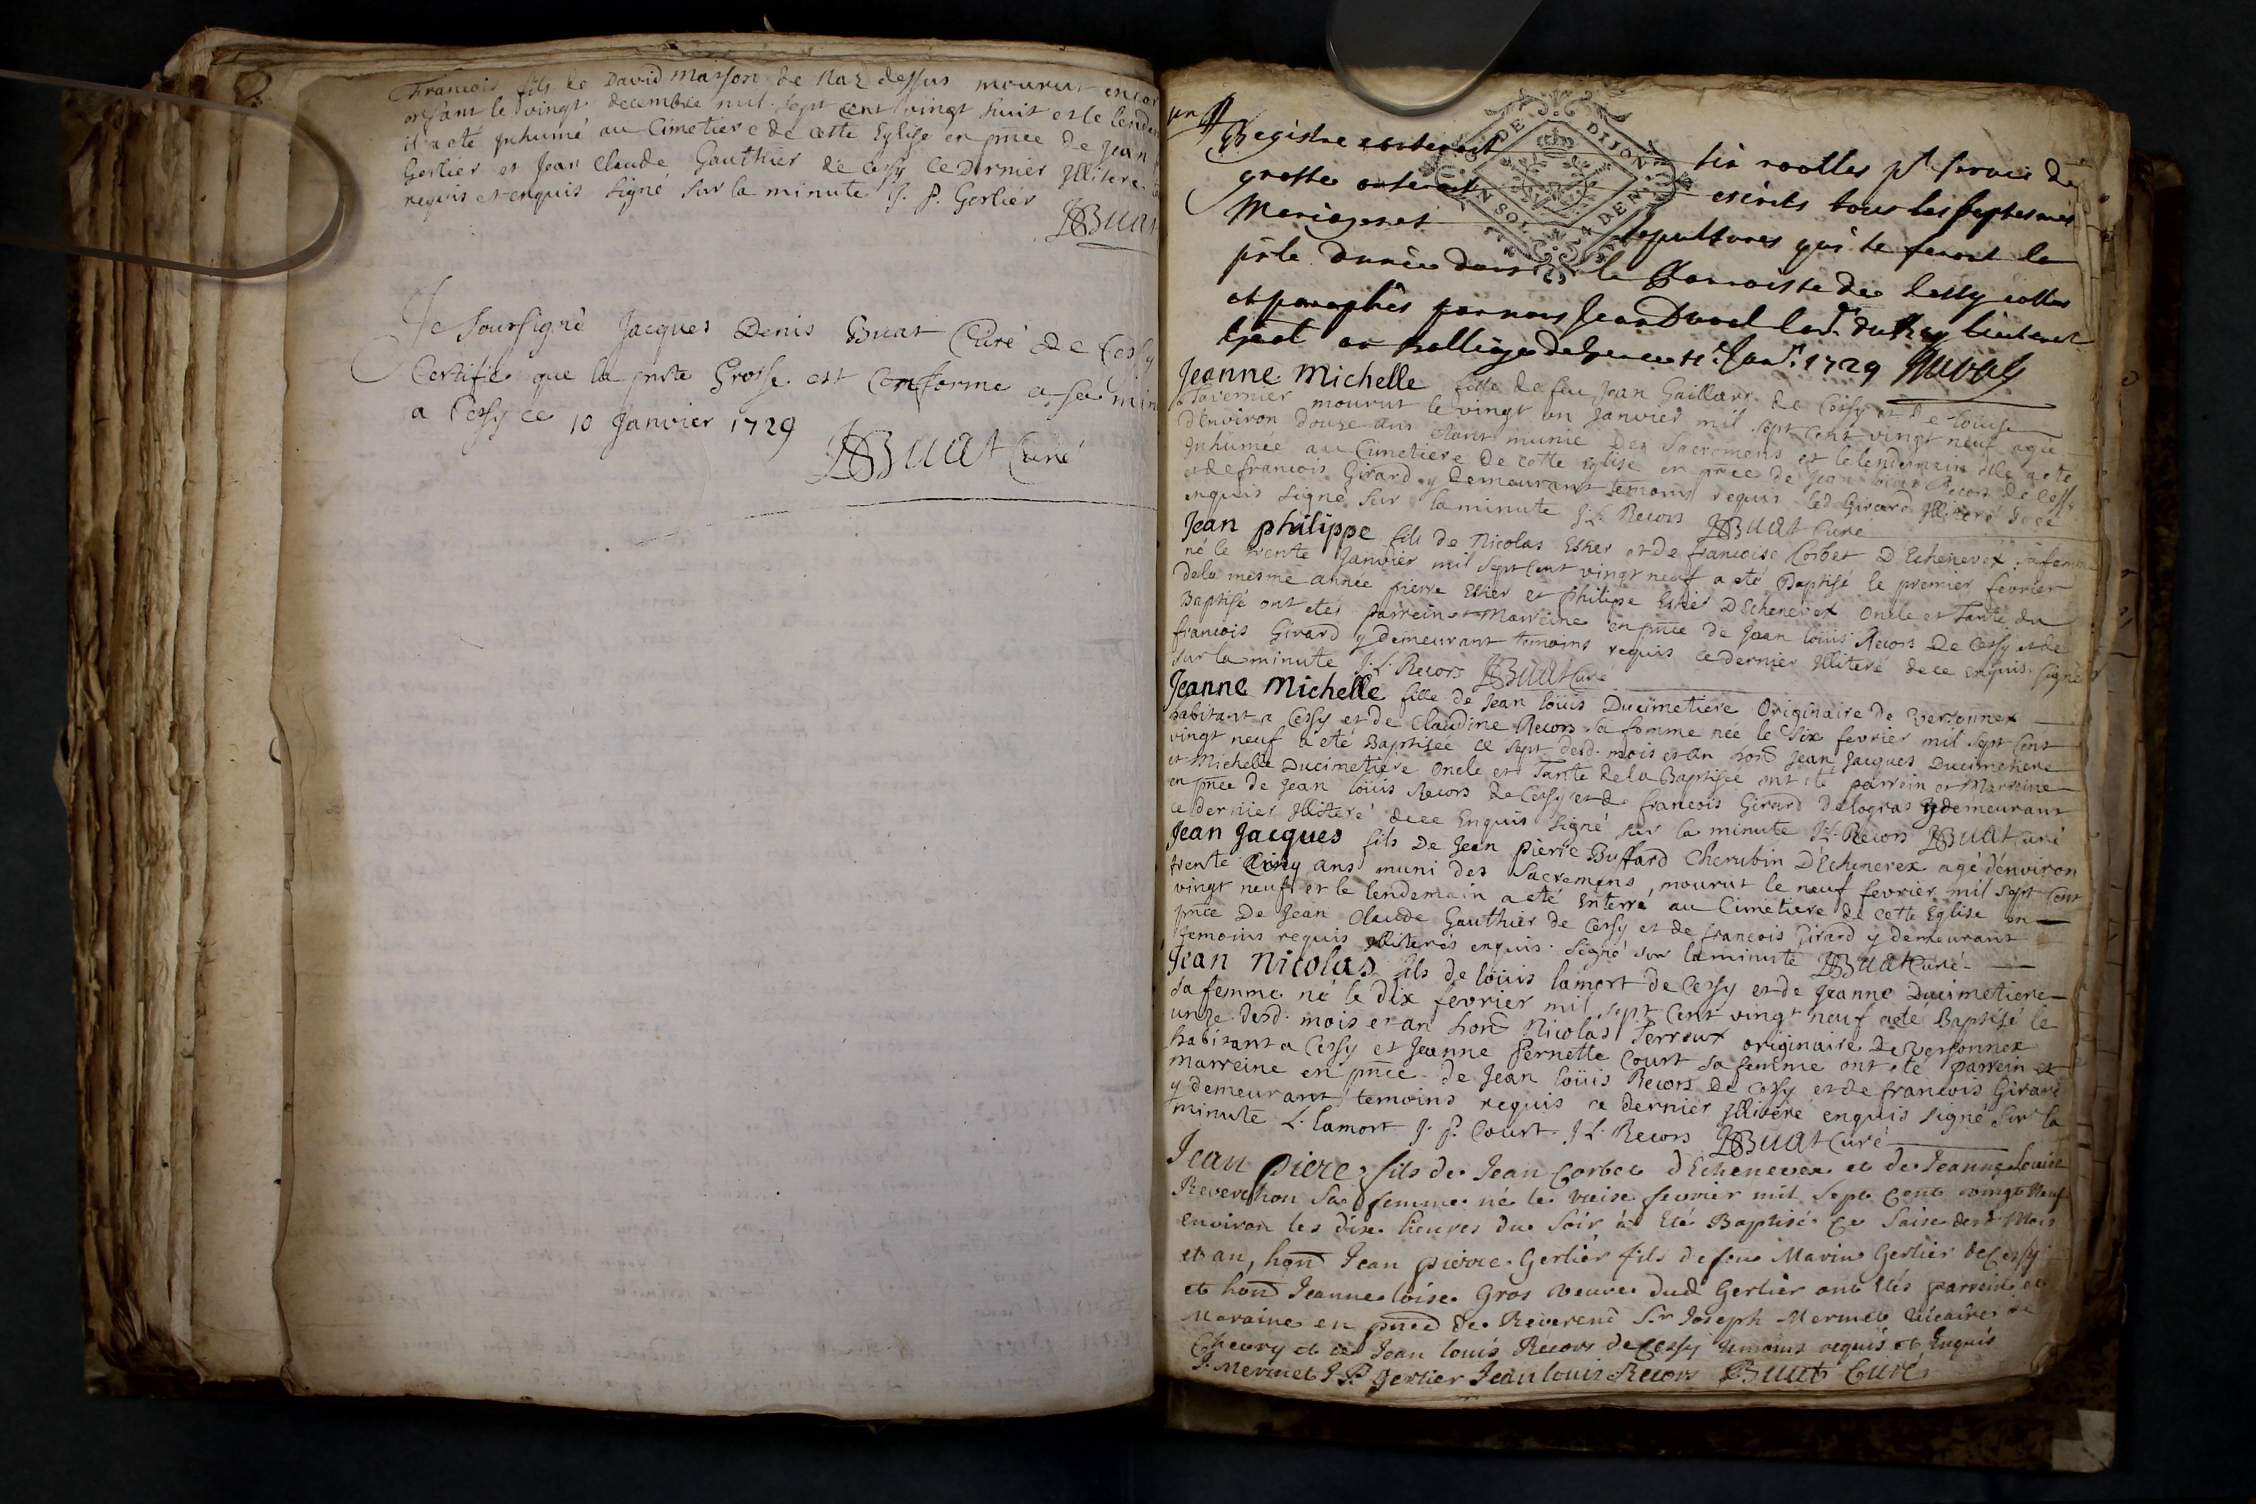 Francois fils de David Maison de Naz dessus mourut encor
enfant le vingt decembre mil sept cent vingt huit et le lende
il a eté inhumé au Cimetiere de cette Eglise en pñce de Jean
Gerlier et Jean Claude Gauthier de Cessy ce dernier Illiteré
requis et enquis signé sur la minute J. P. Gerlier
JBuat
Je soussigné Jacques Denis Buat Curé de Cessy
Certifie que la pñte Grosse est Conforme a sa min
a Cessy ce 10 Janvier 1729
JBuat Curé
GEN DE DIJON
UN SOL 24 DEN
Registre contenant six roolles pr servir de
grosse ou seront escrits tous les baptesmes
Mariages et sepultures qui se feront la
pñte année dans la Parroisse de Cessy cottes
et paraphés par nous Jean Duval Cons. du Roy lieutenant
gñal au balliage de Gex ce 11e Janr 1729 Duval
Jeanne Michelle fille de feu Jean Gaillard de Cessy et De Louise
Tavernier mourut le vingt un Janvier mil sept cent vingt neuf agée
d'environ douze ans etant munie Des Sacremens et le lendemain elle a eté
Inhumée au Cimetiere de cette Eglise en pñce de Jean Louis Recors de Cessy
et de francois Girard y demeurant temoins requis led Girard Illiteré de ce
enquis signé sur la minute J. L. Recors JBuat Curé
Jean philippe fils de Nicolas Esher et de francoise Corbet D'Echenevex sa femme
né le trente Janvier mil sept cent vingt neuf a eté Baptisé le premier fevrier
de la mesme année pierre Esher et philipe Esher D'Echenevex Oncle et Tante du
Baptisé ont etés parrein et Marreine en pñce de Jean loüis Recors De Cessy et de
francois Girard y demeurant temoins requis ce dernier Illiteré de ce enquis signé
sur la minute J. L. Recors JBuat Curé
Jeanne Michelle fille de Jean loüis Ducimetiere Originaire de Versonnex
habitant a Cessy et de Claudine Recors sa femme née le six fevrier mil sept cent
vingt neuf a eté Baptisée le sept desd. mois et an hons Jean Jacques Ducimetiere
et Michelle Ducimetiere Oncle et Tante de la Baptisée ont eté parrein et Marreine
en pñce de Jean loüis Recors de Cessy et de francois Girard Delogras y demeurant
ce dernier Illiteré de ce Enquis signé sur la minute J. L. Recors JBuat Curé
Jean Jacques fils De Jean pierre Buffard Cherubin D'Echenevex agé d'environ
trente Cinq ans muni des Sacremens, mourut le neuf fevrier mil sept cent
vingt neuf et le lendemain a eté Enterré au Cimetiere de cette Eglise en
pñce De Jean Claude Gauthier de Cessy et de francois Girard y demeurant
temoins requis illiterés enquis signé sur la minute JBuat Curé
Jean Nicolas fils de loüis lamort de Cessy et de Jeanne Ducimetiere
sa femme né le Dix fevrier mil sept Cent vingt neuf a eté Baptisé le
unze desd. mois et an hons Nicolas Perroux originaire de Versonnex
habitant a Cessy et Jeanne Pernette Court sa femme ont eté parrein et
marreine en pñce de Jean loüis Recors De Cessy et de francois Girard
y demeurant temoins requis ce dernier Illiteré enquis signé sur la
minute L. lamort J. P. Court J. L. Recors JBuat Curé
Jean Piere fils de Jean Corbet d'Echenevex et de Jeanne Louise
Reverchon sa femme né le treise fevrier mil sept Cent vingt Neuf
environ les dix heures du soir a Eté Baptisé ce saise desd Mois
et an, hons Jean pierre Gerlier fils de feu Marin Gerlier de Cessy
et hons Jeanne loise Gros veuve dud Gerlier ont Etés parrein et
Maraine en pñce de Reverend Sr Joseph Mermet Vicaire de
Chevry et de Jean louis Recors de Cessy temoins requis et Enquis
J. Mermet J P. Gerlier Jean louis Recors Buat Curé